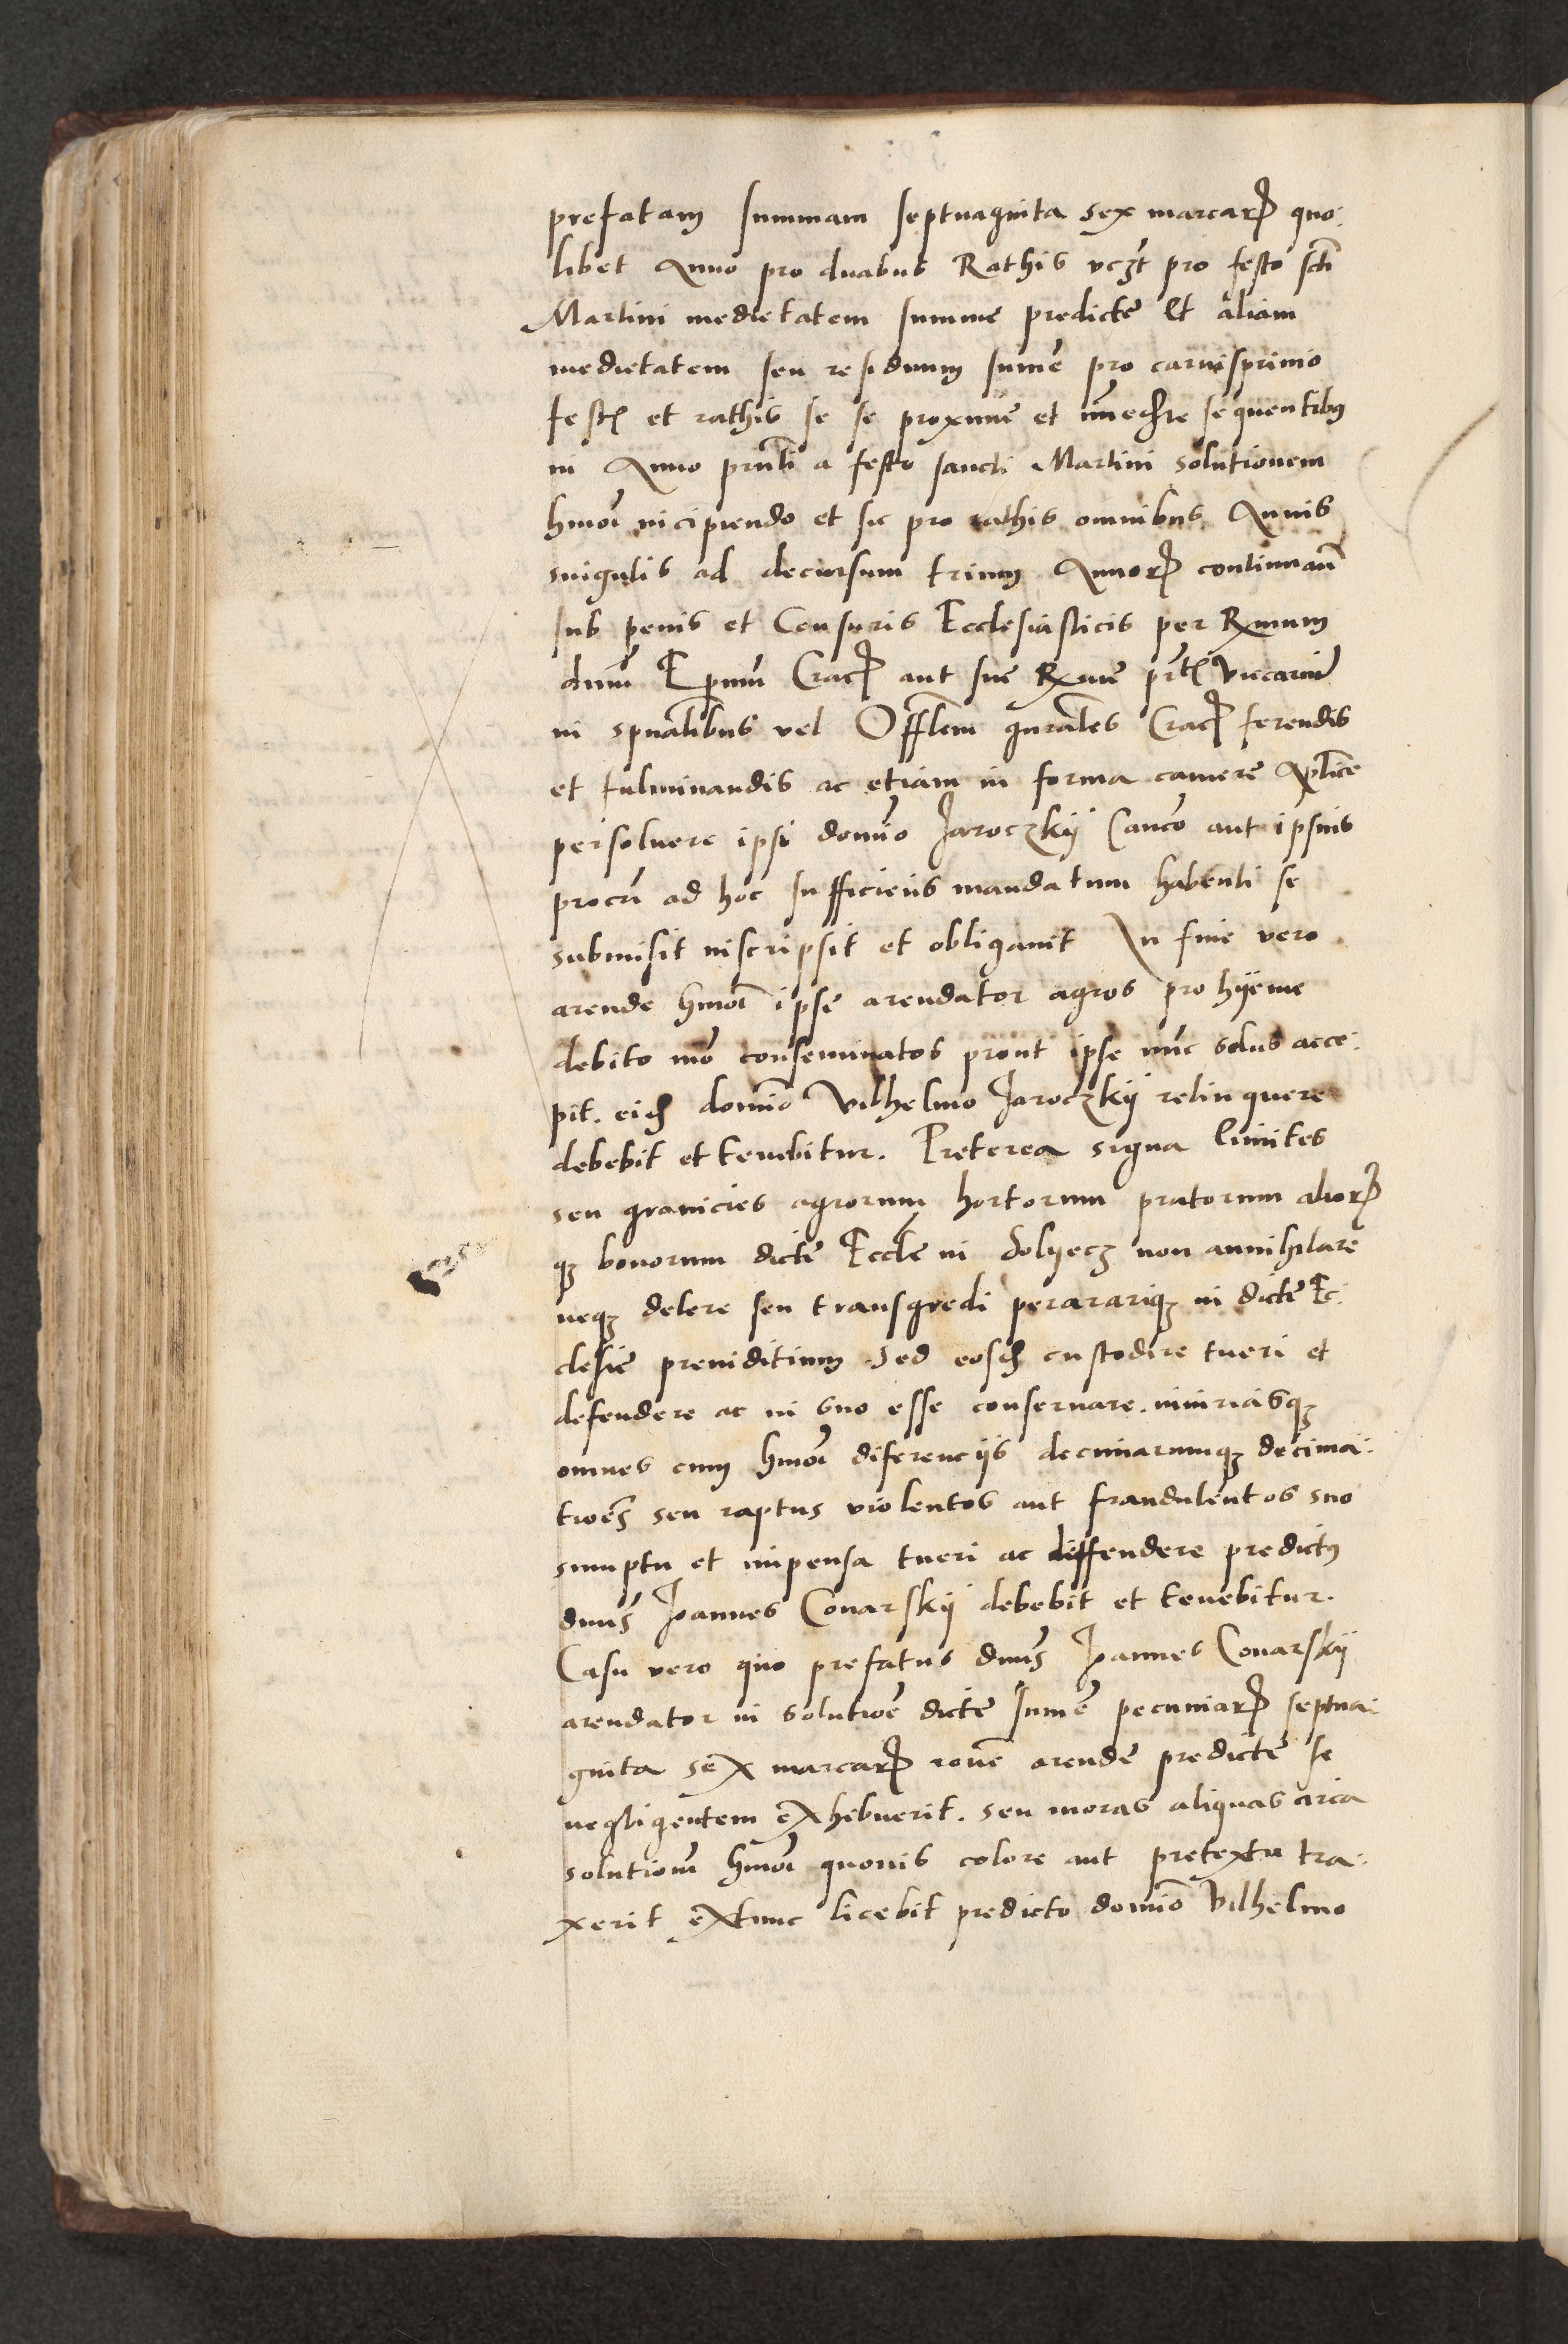 prefatam summam septuaginta sex marcarꝝ quo-
libet Anno pro duabus Rathis vcʒt pro festo scti
Martini medietatem summe predicte Et aliam
medietatem seu residuum sume pro carnisprinio
fest et rathis se se proxime et immedte sequentibus
in Anno prnti a festo sancti Martini solutionem
hmoi incipiendo et sic pro rathis omnibus Annis
singulis ad decursum trium Annorꝝ continuan
sub penis et Censuris Ecclesiasticis per Rxmum
dnum Epum Cracꝝ aut sue Rxme prt Vicarium
in spualibus vel Offlem gnrales Cracꝝ ferendis
et fulminandis ac etiam in forma camere Aplice
persoluere ipsi domio Jaroczkij Canco aut ipsius
procri ad hoc sufficiens mandatum habenti se
submisit inscripsit et obligauit In fine vero
arende hmoi ipse arendator agros pro hijeme
debito mo conseminatos prout ipse nunc solus acce-
pit. eid domio Vilhelmo Jaroczkij relinquere
debebit et tenebitur. Preterea signa limites
seu granicies agrorum hortorum pratorum aliorꝝ
qʒ bonorum dicte Eccle in Solyecʒ non annihilare
neqʒ delere seu transgredi perararique in dicte Ec-
clesie preiuditium Sed eosd custodire tueri et
defendere ac in suo esse conseruare. iniuriasqʒ
omnes cum hmoi diferencijs decimarumqʒ decima-
tioes seu raptus violentos aut fraudulentos suo
sumptu et impensa tueri ac deffendere predictus
dnus Joannes Conarskij debebit et tenebitur.
Casu vero quo prefatus dnus Joannes Conarskij
arendator in solutioe dicte sume pecuniarꝝ septua-
ginta sex marcarꝝ rone arende predicte se
negligentem exhibuerit. seu moras aliquas circa
solutionm hmoi quouis colore aut pretextu tra-
xerit extunc licebit predicto domio Vilhelmo